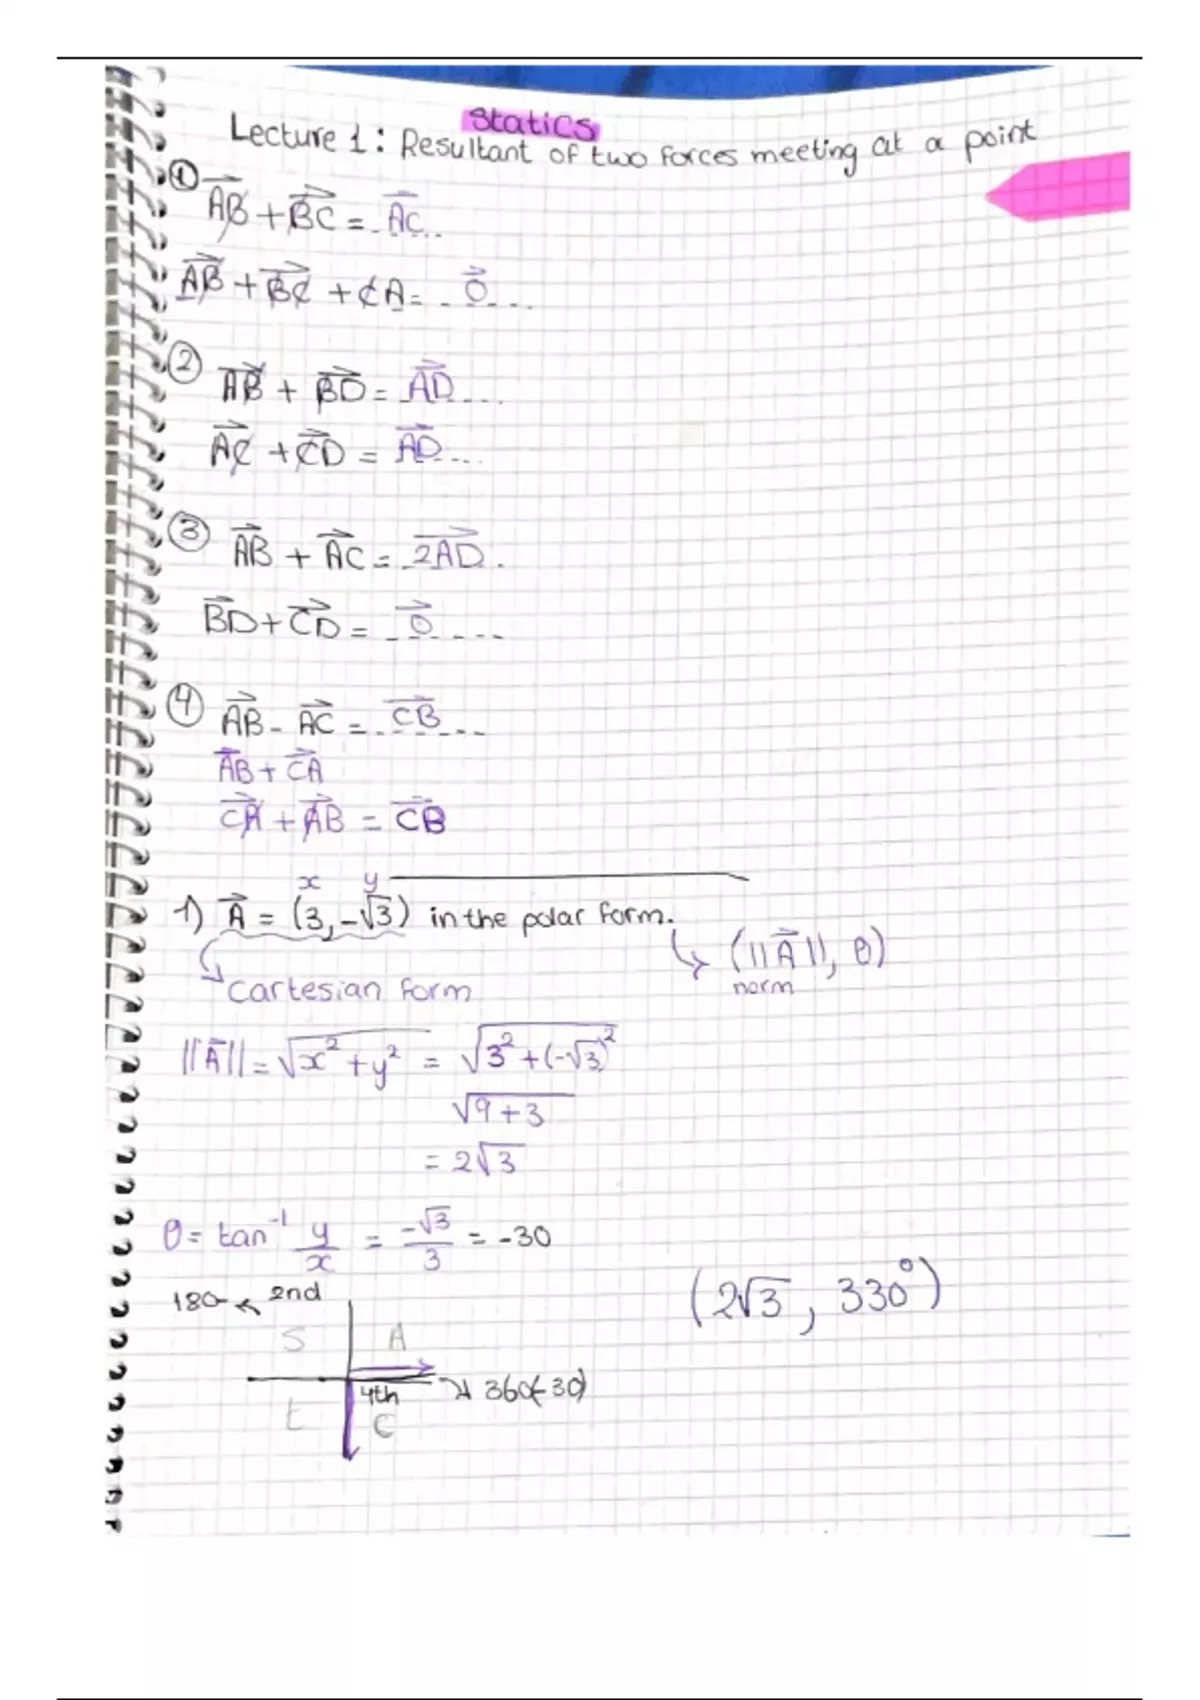 Statics
Lecture 1: Resultant of two forces meeting at a point
① A⃗B + B⃗C = A⃗C
A⃗B + B⃗C + CA = 0⃗
② A⃗B + B⃗D = A⃗D
A⃗C + C⃗D = A⃗D
③ A⃗B + A⃗C = 2A⃗D
B⃗D + C⃗D = 0⃗
④ A⃗B - A⃗C = C⃗B
A⃗B + C⃗A
C⃗A + A⃗B = C⃗B
x y
1) A⃗ = (3, -√3) in the polar form.
(||A⃗||, θ)
cartesian form
norm
||A⃗|| = √(x² + y²) = √(3² + (-√3)²)
√(9 + 3)
= 2√3
θ = tan⁻¹ y/x = -√3/3 = -30
180- 2nd
(2√3, 330°)
S A
4th 360(-30)
t C